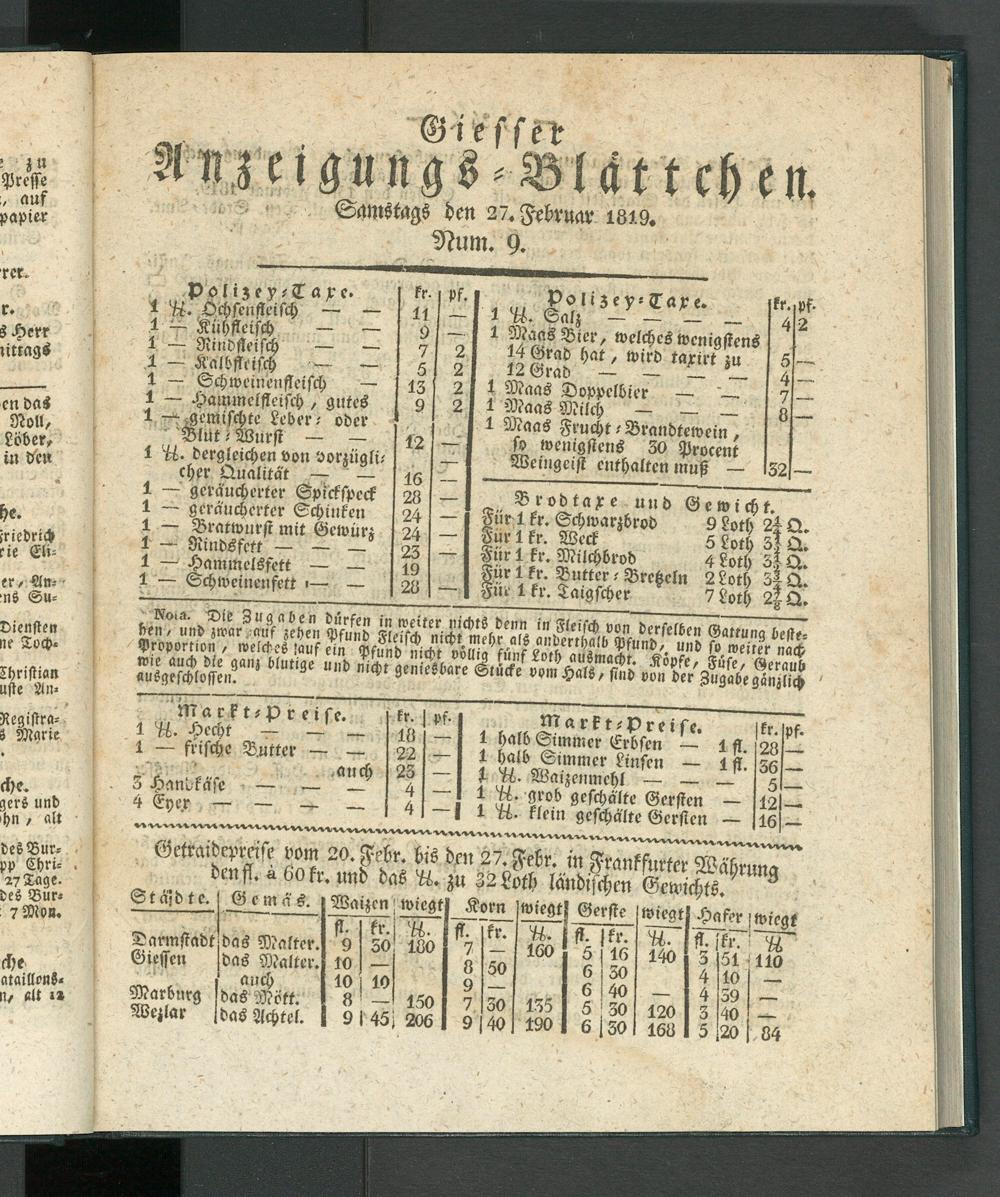 e zu
Presse
, auf
papier
rrer.
r.
s Herr
mittags
en das
Noll,
Löber,
in den
he.
Friedrich
rie Eli-
er, An-
ens Su-
Diensten
ne Toch-
Christian
uste An-
Registra-
s Marie
che.
gers und
ohn, alt
des Bur-
pp Chri-
27 Tage.
des Bur-
7 Mon.
che
ataillons-
n, alt 12
Giesser
Anzeigungs-Blättchen.
Samstags den 27. Februar 1819.
Num. 9.
Polizey-Taxe. kr. pf.
1 ℔. Ochsenfleisch — — 11 —
1 — Kühfleisch — — 9 —
1 — Rindfleisch — — 7 2
1 — Kalbfleisch — — 5 2
1 — Schweinenfleisch — 13 2
1 — Hammelfleisch, gutes 9 2
1 — gemischte Leber- oder
Blut-Wurst — — 12 —
1 ℔. dergleichen von vorzügli-
cher Qualität — 16 —
1 — geräucherter Spickspeck 28 —
1 — geräucherter Schinken 24 —
1 — Bratwurst mit Gewürz 24 —
1 — Rindsfett — — — 23 —
1 — Hammelsfett — — 19 —
1 — Schweinenfett — — 28 —
Polizey-Taxe. kr. pf.
1 ℔. Salz — — — — 4 2
1 Maas Bier, welches wenigstens
14 Grad hat, wird taxirt zu 5 —
12 Grad — — — — 4 —
1 Maas Doppelbier — — 7 —
1 Maas Milch — — — 8 —
1 Maas Frucht-Brandtewein,
so wenigstens 30 Procent
Weingeist enthalten muß — 32 —
Brodtaxe und Gewicht.
Für 1 kr. Schwarzbrod 9 Loth 2 Q.
Für 1 kr. Weck 5 Loth 3 Q.
Für 1 kr. Milchbrod 4 Loth 3 Q.
Für 1 kr. Butter-Bretzeln 2 Loth 3 Q.
Für 1 kr. Taigscher 7 Loth 2 Q.
Nota. Die Zugaben dürfen in weiter nichts denn in Fleisch von derselben Gattung beste-
hen, und zwar auf zehen Pfund Fleisch nicht mehr als anderthalb Pfund, und so weiter nach
Proportion, welches auf ein Pfund nicht völlig fünf Loth ausmacht. Köpfe, Füse, Geraub
wie auch die ganz blutige und nicht geniesbare Stücke vom Hals, sind von der Zugabe gänzlich
ausgeschlossen.
Markt-Preise. kr. pf.
1 ℔. Hecht — — — 18 —
1 — frische Butter — — 22 —
auch 23 —
3 Handkäse — — — 4 —
4 Eyer — — — — 4 —
Markt-Preise. kr. pf.
1 halb Simmer Erbsen — 1 fl. 28 —
1 halb Simmer Linsen — 1 fl. 36 —
1 ℔. Waizenmehl — — — 5 —
1 ℔. grob geschälte Gersten — 12 —
1 ℔. klein geschälte Gersten — 16 —
Getraidepreise vom 20. Febr. bis den 27. Febr. in Frankfurter Währung
den fl. à 60 kr. und das ℔. zu 32 Loth ländischen Gewichts.
Städte. Gemäs. Waizen wiegt Korn wiegt Gerste wiegt Hafer wiegt
fl. kr. ℔. fl. kr. ℔. fl. kr. ℔. fl. kr. ℔
Darmstadt das Malter. 9 30 180 7 — 160 5 16 140 3 51 110
Giessen das Malter. 10 — 8 50 6 30 4 10 —
auch 10 10 9 — 6 40 — 4 39 —
Marburg das Mött. 8 — 150 7 30 135 5 30 120 3 40 —
Wezlar das Achtel. 9 45 206 9 40 190 6 30 168 5 20 84